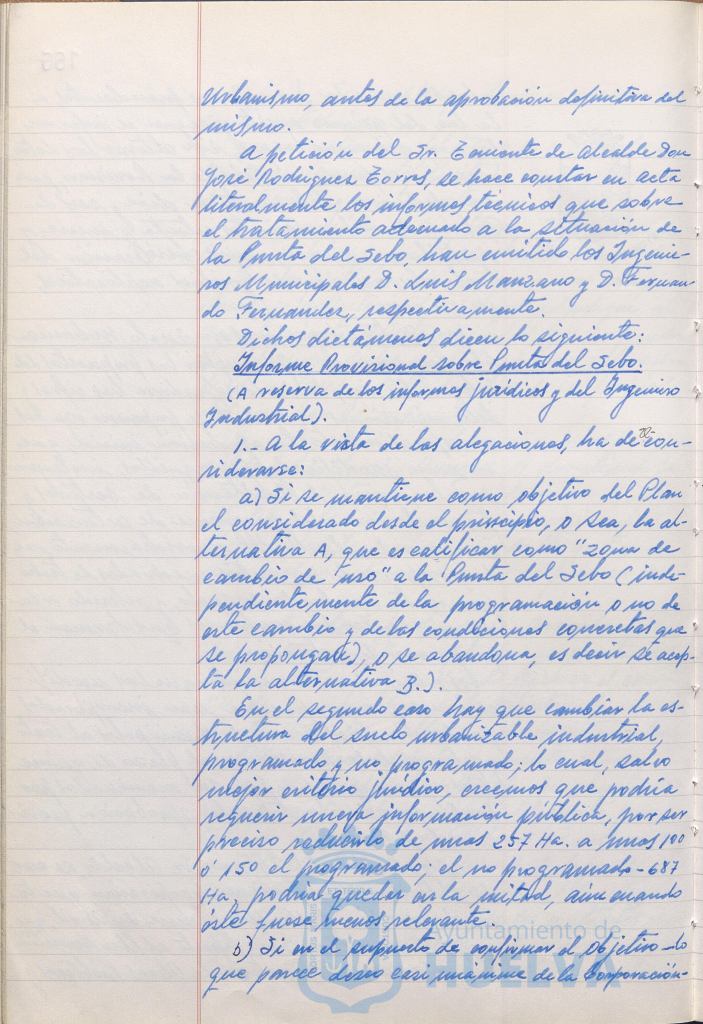 Urbanismo, antes de la aprobación definitiva del
mismo.
A petición del Sr. Teniente de Alcalde Don
José Rodríguez Torres, se hace constar en acta
literalmente los informes técnicos que sobre
el tratamiento adecuado a la situación de
la Punta del Sebo, han emitido los Ingenie-
ros Municipales D. Luis Manzano y D. Fernan-
do Fernandez, respectivamente.
Dichos dictámenes dicen lo siguiente:
Informe Provisional sobre Punta del Sebo.
(A reserva de los informes jurídicos y del Ingeniero
Industrial).
1.- A la vista de las alegaciones, ha de con-
siderarse:
a) Si se mantiene como objetivo del Plan
el considerado desde el principio, o sea, la al-
ternativa A, que es calificar como "zona de
cambio de uso" a la Punta del Sebo (inde-
pendientemente de la programación o no de
este cambio y de las condiciones concretas que
se propongan), o se abandona, es decir se acep-
ta la alternativa B.).
En el segundo caso hay que cambiar la es-
tructura del suelo urbanizable industrial,
programado y no programado; lo cual, salvo
mejor criterio jurídico, creemos que podría
requerir nueva información pública, por ser
preciso reducirlo de unas 257 Ha. a unas 100
ó 150 el programado; el no programado - 687
Ha, podría quedar en la mitad, aun cuando
éste fuese menos relevante.
b) Si en el supuesto de confirmar el objetivo - lo
que parece deseo casi unánime de la Corporación-
Ayuntamiento de
HUELVA